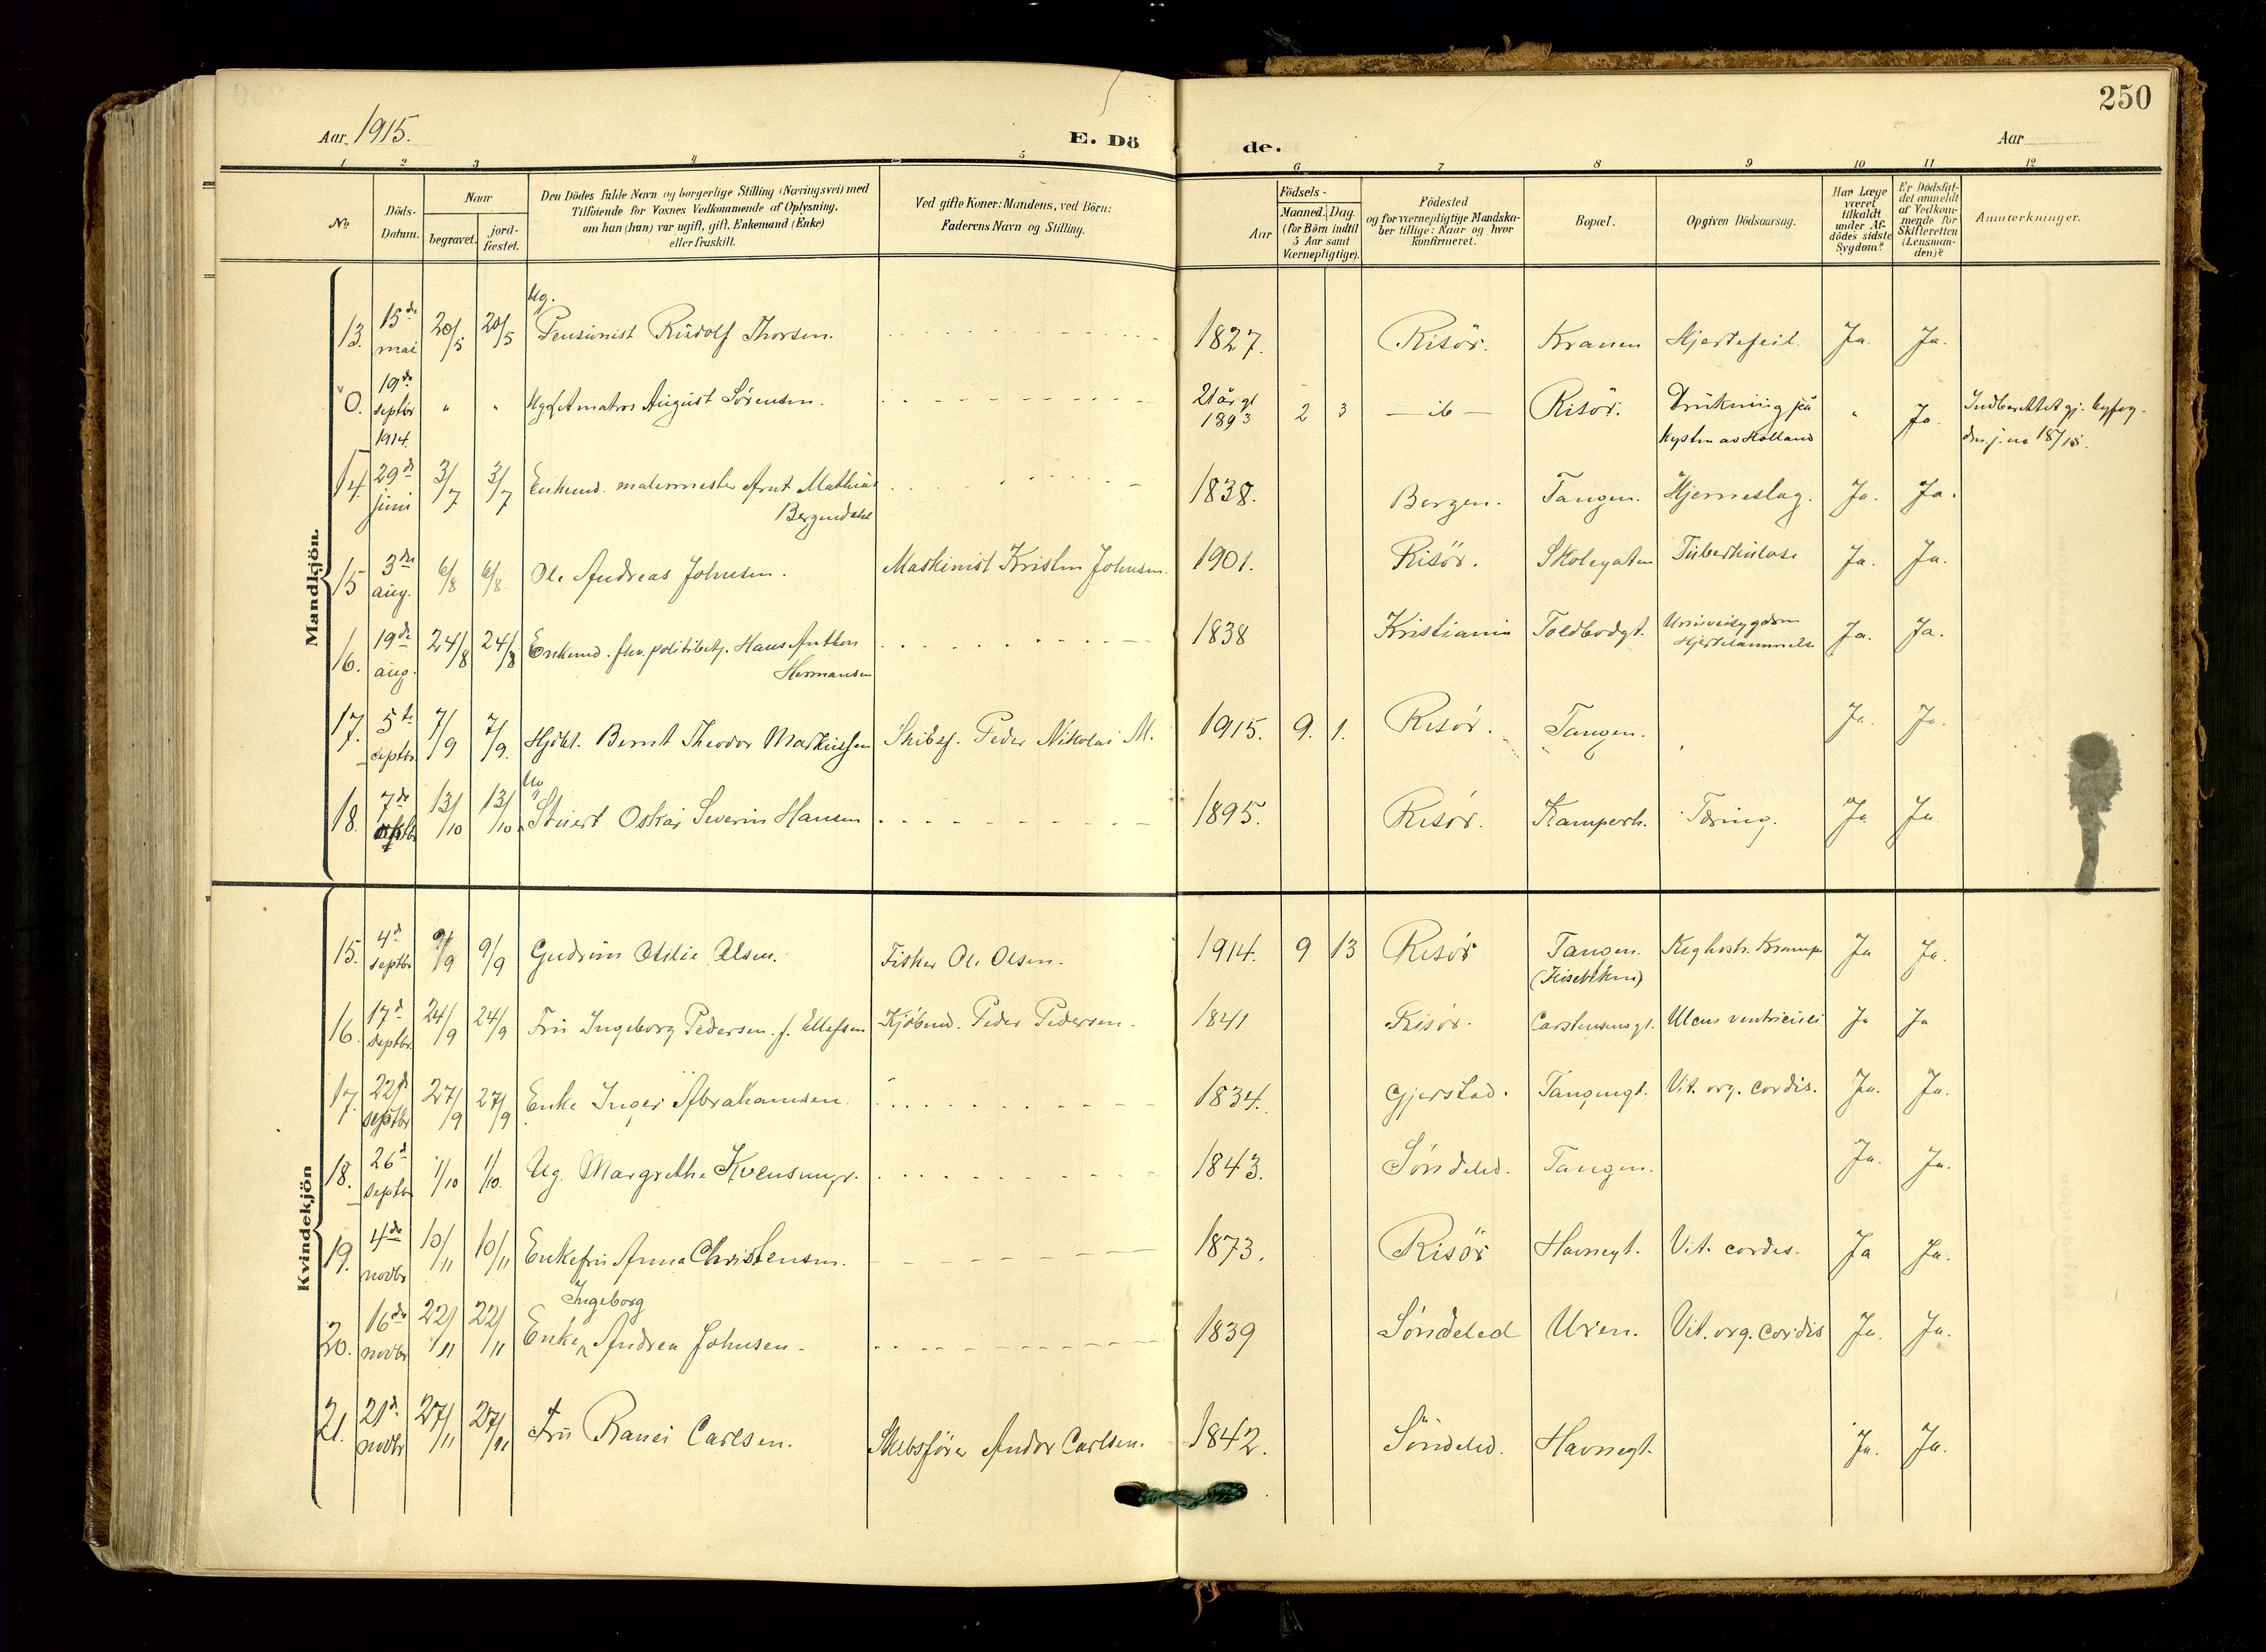 250
Aar 1915.
E. Dö de.
Aar
1 2 3 4 5 6 7 8 9 10 11 12
No
Döds-Datum.
Naar
begravet.
jord-fæstet.
Den Dödes fulde Navn og borgerlige Stilling (Næringsvei) med
Tilföiende for Voxnes Vedkommende af Oplysning.
om han (hun) var ugift, gift, Enkemand (Enke)
eller fraskilt.
Ved gifte Koner: Mandens, ved Börn:
Faderens Navn og Stilling.
Födsels-
Aar
Maaned. Dag.
(for Börn indtil
5 Aar samt
Værnepligtige).
Födested
og for værnepligtige Mandska-
ber tillige: Naar og hvor
konfirmeret.
Bopæl.
Opgiven Dödsaarsag.
Har Læge
været
tilkaldt
under Af-
dödes sidste
Sygdom?
Er Dödsfal-
det anmeldt
af Vedkom-
mende for
Skifteretten
(Lensman-
den)?
Anmærkninger.
Mandkjön.
Ug.
13. 15de mai 20/5 20/5 Pensionist Rudolf Thorsen. 1827. Risör. Kranen Hjertefeil. Ja. Ja.
0. 19de septbr 1914. " " August Sörensen. 21 år gl 1893 2 3 — ib — Risör. Drukning på " Ja.
Kysten av Holland
14. 29de juni 3/7 3/7 Enkemd. malermester Arnt Mathias
Bergendahl 1838. Bergen. Tangen. Hjerneslag. Ja. Ja.
15 3die aug. 6/8 6/8. Ole Andreas Johnsen. Maskinist Kristen Johnsen. 1901. Risör. Skolegaten Tuberkulose Ja. Ja.
16. 19de aug. 24/8 24/8 Enkemd. fhv. politibetj. Hans Anthon
Hermansen 1838 Kristiania Toldbodgt. Ja. Ja.
17. 5te septbr. 7/9 7/9. Hjdöbt. Bernt Theodor Markussen Skibsf. Peder Nikolai M. 1915. 9. 1. Risör. Tangen. Ja. Ja.
18. 7de 13/10 13/10 Stuert Oskar Severin Hansen 1895. Risör. Kamperh. Tæring. Ja Ja.
Kvindekjön
15. 4de septbr 9/9 9/9 Gudrun Otilie Olsen. Fisker Ole Olsen. 1914. 9 13 Risör Tangen. Kighoste. Krampe Ja Ja.
16. 17de septbr. 24/9 24/9 Fru Ingeborg Pedersen f. Ellefsen Kjöbmd. Peder Pedersen. 1841 Risör. Carstensensgt. Ulcus ventriculi Ja Ja
17. 22de septbr 27/9 27/9 Enke Inger Abrahamsen. 1834. Gjerstad. Tangengt. Vit. org. cordis. Ja. Ja.
18. 26de septbr 1/10 1/10. Ug. Margrethe 1843. Söndeled. Tangen. Ja. Ja.
19. 4de novbr 10/11 10/11 Enkefru Anna Christensen. 1873. Risör Havnegt. Vit. cordis. Ja Ja.
Ingeborg
20. 16de novbr 22/11 22/11 Enke Andrea Johnsen. 1839 Söndeled Uren. Vit. org. cordis Ja. Ja.
21. 21de novbr 27/11 27/11 Fru Ranei Carlsen. Skibsförer Andor Carlsen. 1842. Söndeled. Havnegt. Ja. Ja.